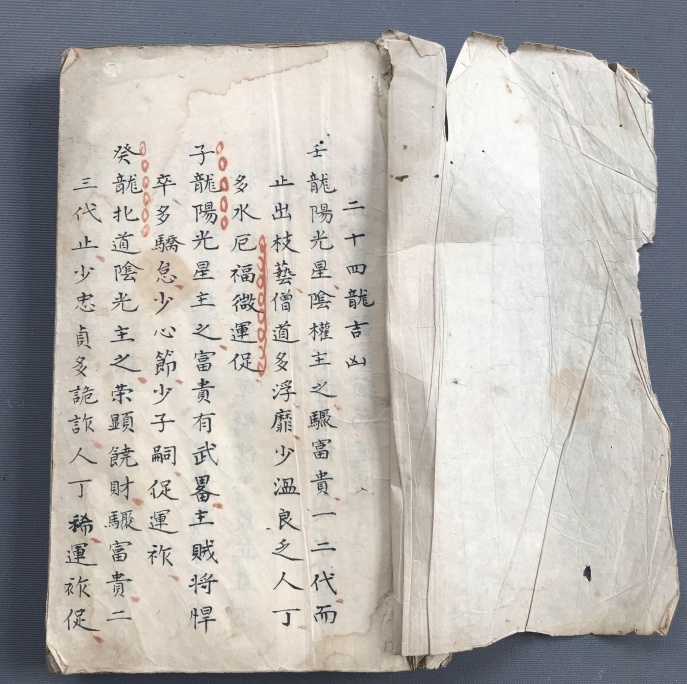 二十四龍吉凶
壬龍陽光星陰權主之驟富貴一二代而
止出枝藝僧道多浮靡少溫良乏人丁
多水厄福微運促
子龍陽光星主之富貴有武畧主賊將悍
卒多驕怠少心節少子嗣促運祚
癸龍北道陰光主之荣顕饒財驟富貴二
三代止少忠貞多詭詐人丁稀運祚促